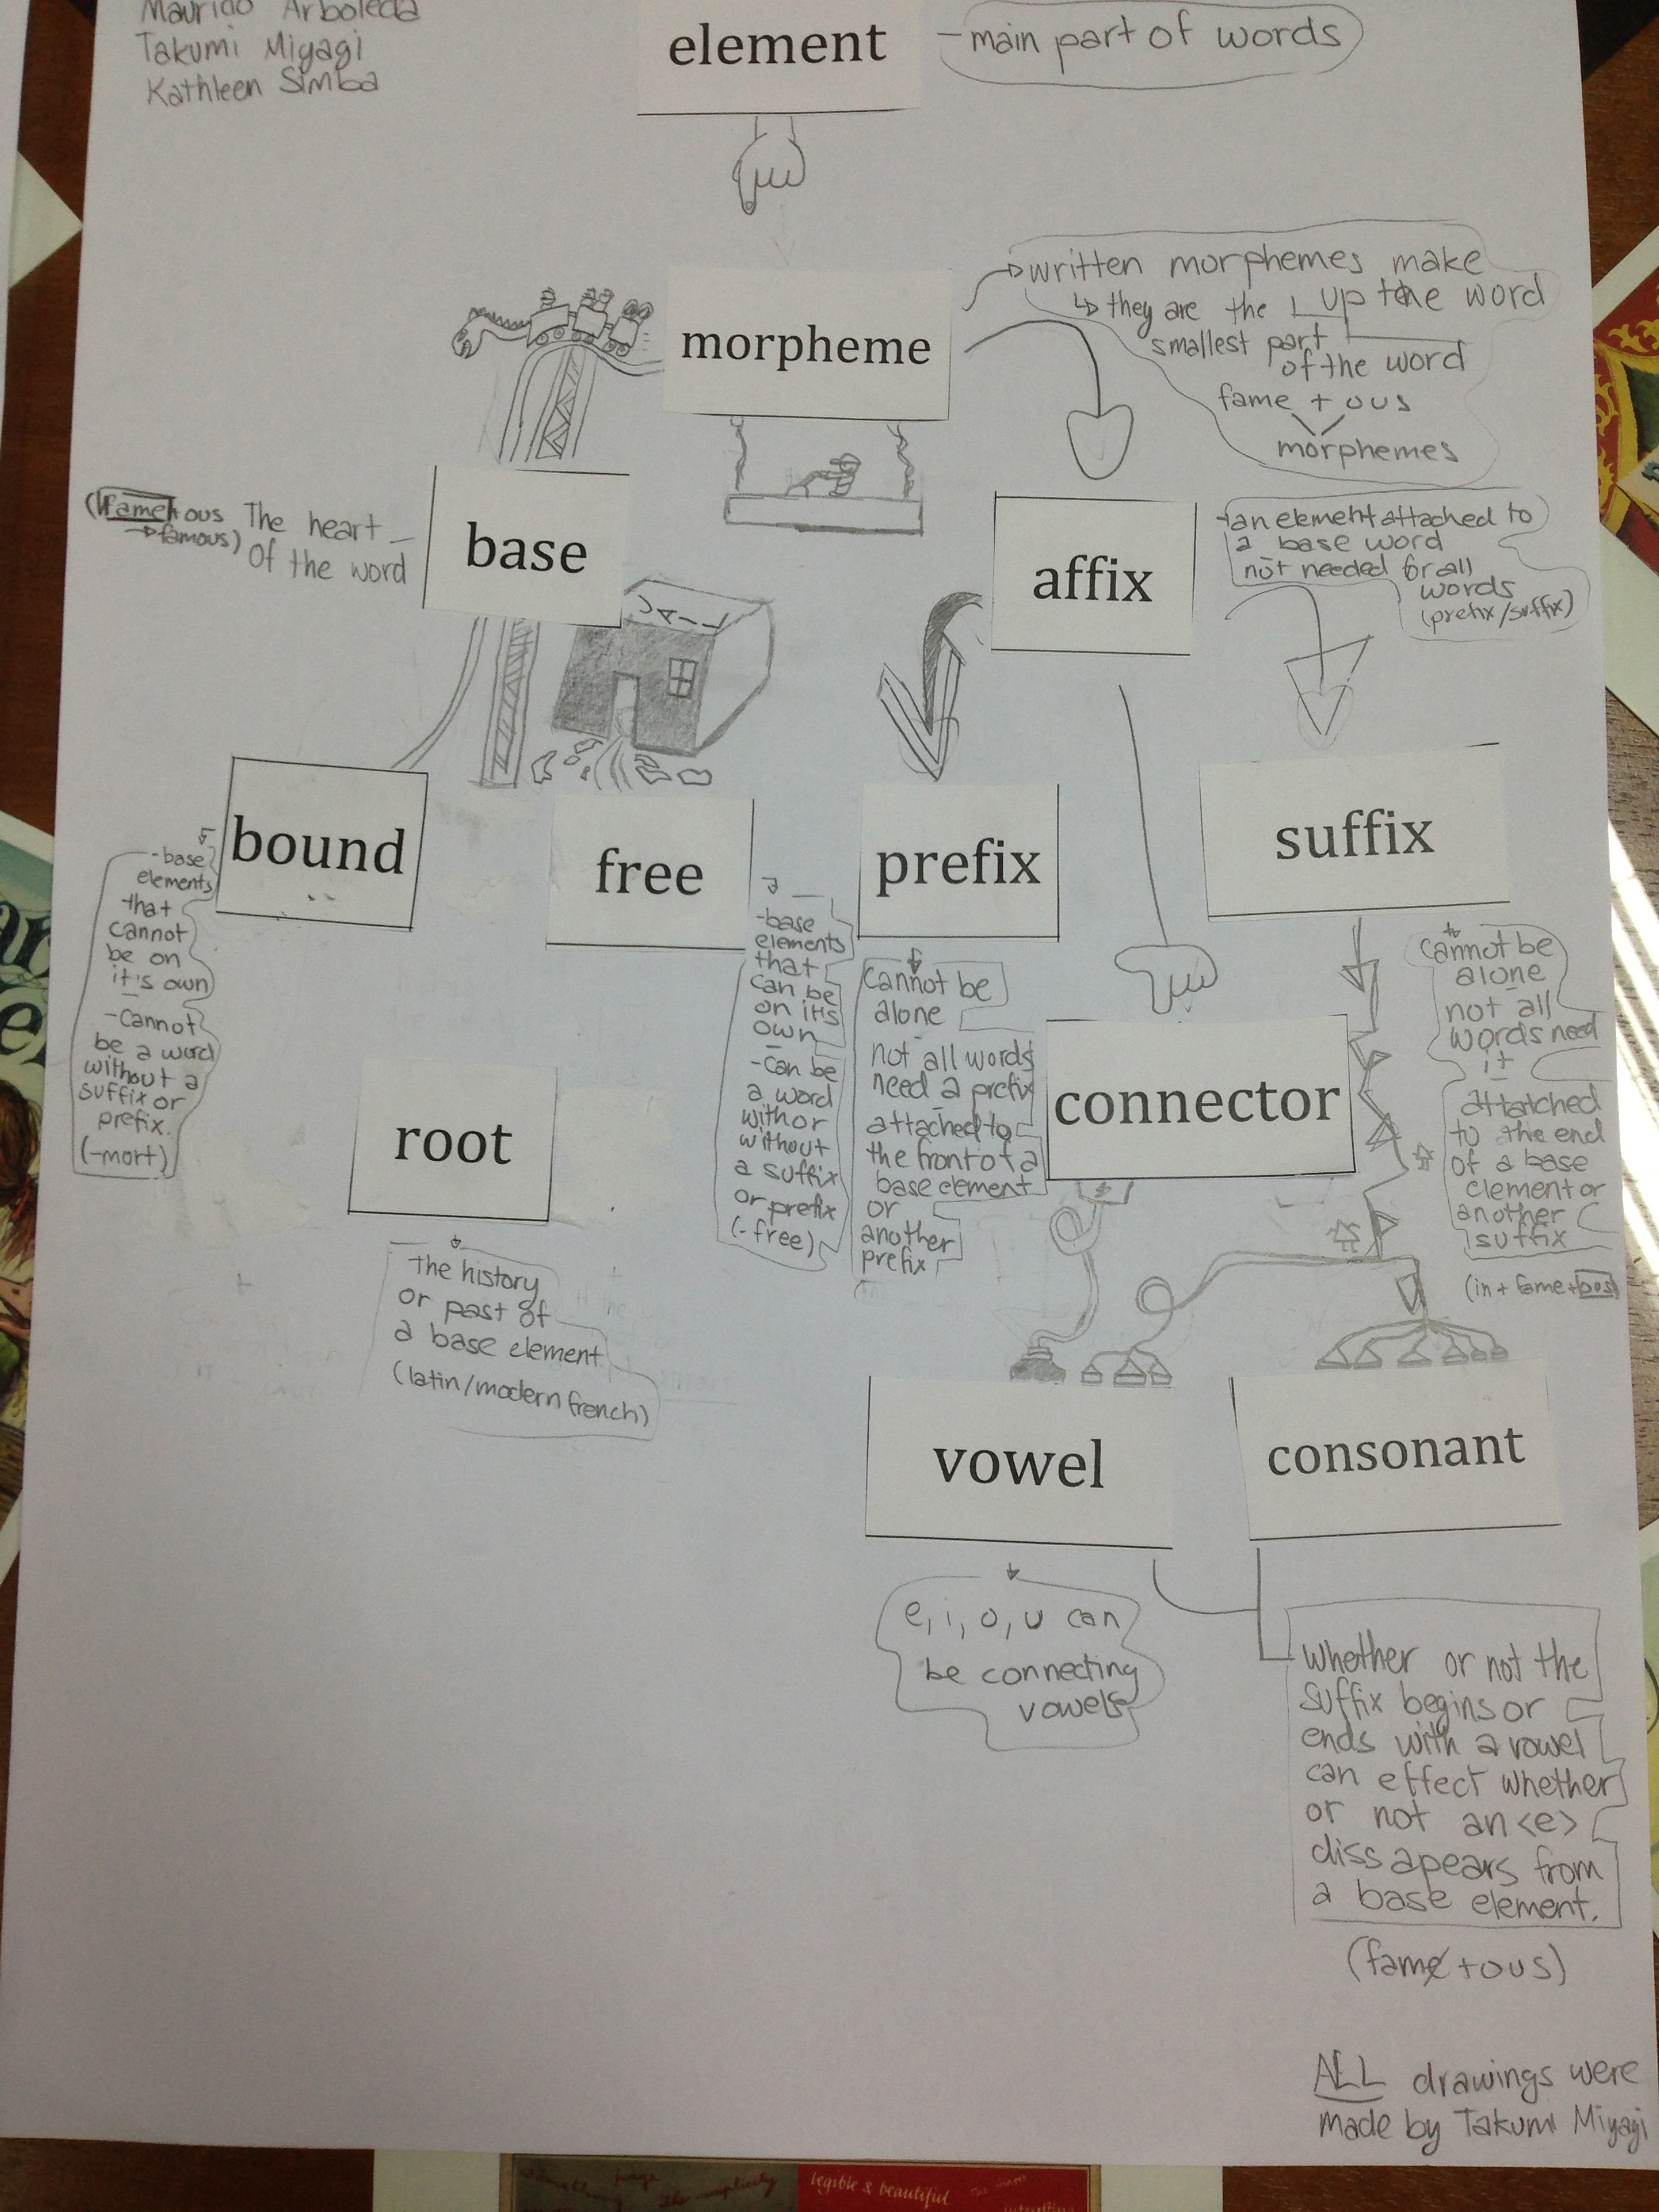 Mauricio Arboleda
Takumi Miyagi
Kathleen Simba
element
- main part of words
morpheme
written morphemes make
up the word
they are the
smallest part
of the word
fame + ous
morphemes
base
(fame+ous
famous)
The heart
Of the word
JAIL
affix
-an element attached to
a base word
not needed for all
words
(prefix/suffix)
bound
-base
elements
that
cannot
be on
it's own
-Cannot
be a word
without a
suffix or
prefix.
(-mort)
free
-base
elements
that
can be
on it's
own
-Can be
a word
with or
without
a suffix
or prefix
(-free)
prefix
Cannot be
alone
not all words
need a prefix
attached to
the front of a
base element
or
another
prefix
suffix
Cannot be
alone
not all
words need
it
attatched
to the end
of a base
element or
another
suffix
(in + fame + ous)
root
The history
or past of
a base element
(latin/modern french)
connector
vowel
e, i, o, u can
be connecting
vowels
consonant
Whether or not the
suffix begins or
ends with a vowel
can effect whether
or not an <e>
dissapears from
a base element.
(fame + ous)
ALL drawings were
made by Takumi Miyagi
page
The simplicity
legible & beautiful